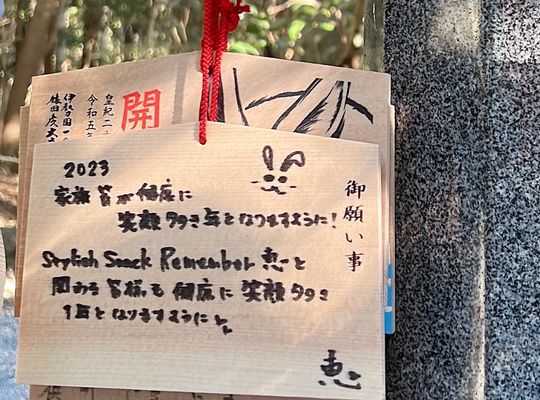 御願い事
2023
家族皆が健康に
笑顔多き年となりますように!
Stylish Snack Remember 恵と
関わる皆様も健康に笑顔多き
1年となりますように
恵
開
皇紀二
令和五年